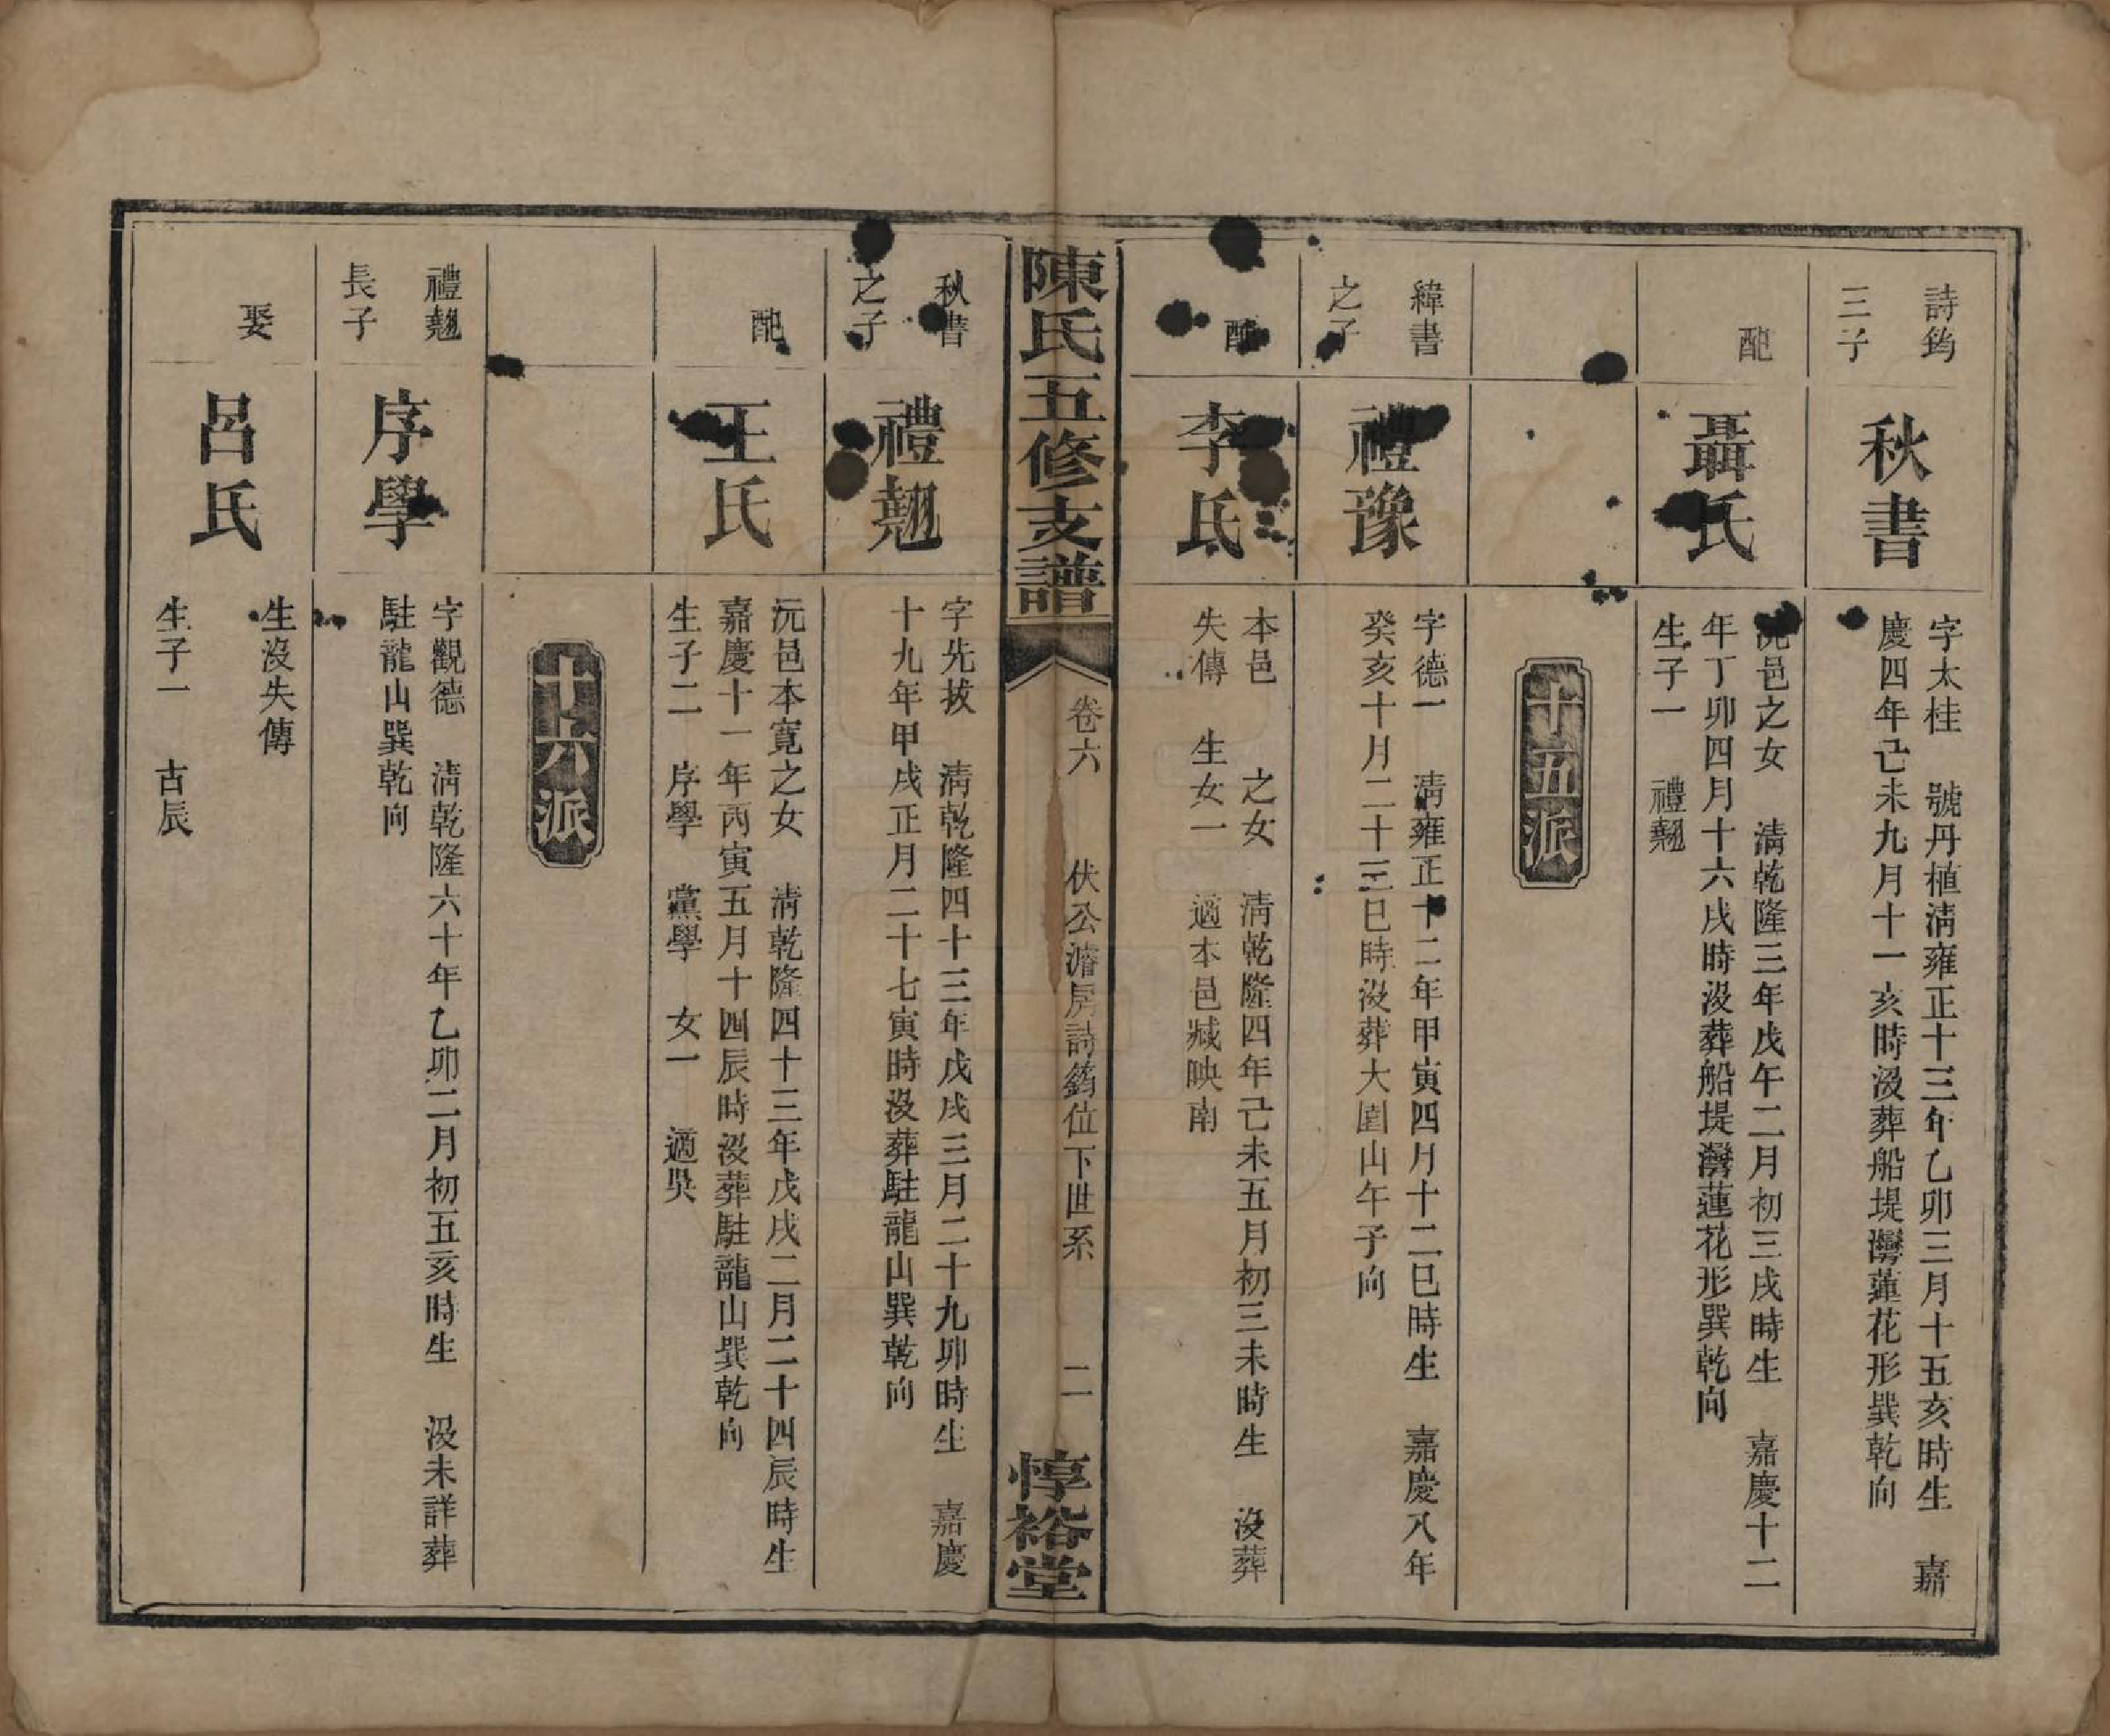 詩筠
三子
秋書
字太桂　號丹植清雍正十三年乙卯三月十五亥時生　嘉
慶四年己未九月十一亥時沒葬船堤灣蓮花形巽乾向
配
聶氏
沅邑之女　清乾隆三年戊午二月初三戌時生　嘉慶十二
年丁卯四月十六戌時沒葬船堤灣蓮花形巽乾向
生子一　禮翹
十五派
緯書
之子
禮豫
字德一　清雍正十二年甲寅四月十二巳時生　嘉慶八年
癸亥十月二十三巳時沒葬大圍山午子向
配
李氏
本邑　之女　清乾隆四年己未五月初三未時生　沒葬
失傳　生女一　適本邑臧映南
陳氏五修支譜
卷六　伏公濬房詩筠位下世系　二
惇裕堂
秋書
之子
禮翹
字先拔　清乾隆四十三年戊戌三月二十九卯時生　嘉慶
十九年甲戌正月二十七寅時沒葬駐龍山巽乾向
配
王氏
沅邑本寬之女　清乾隆四十三年戊戌二月二十四辰時生
嘉慶十一年丙寅五月十四辰時沒葬駐龍山巽乾向
生子二　序學　黨學　女一　適吳
十六派
禮翹
長子
序學
字觀德　清乾隆六十年乙卯二月初五亥時生　沒未詳葬
駐龍山巽乾向
娶
呂氏
生沒失傳
生子一　古辰